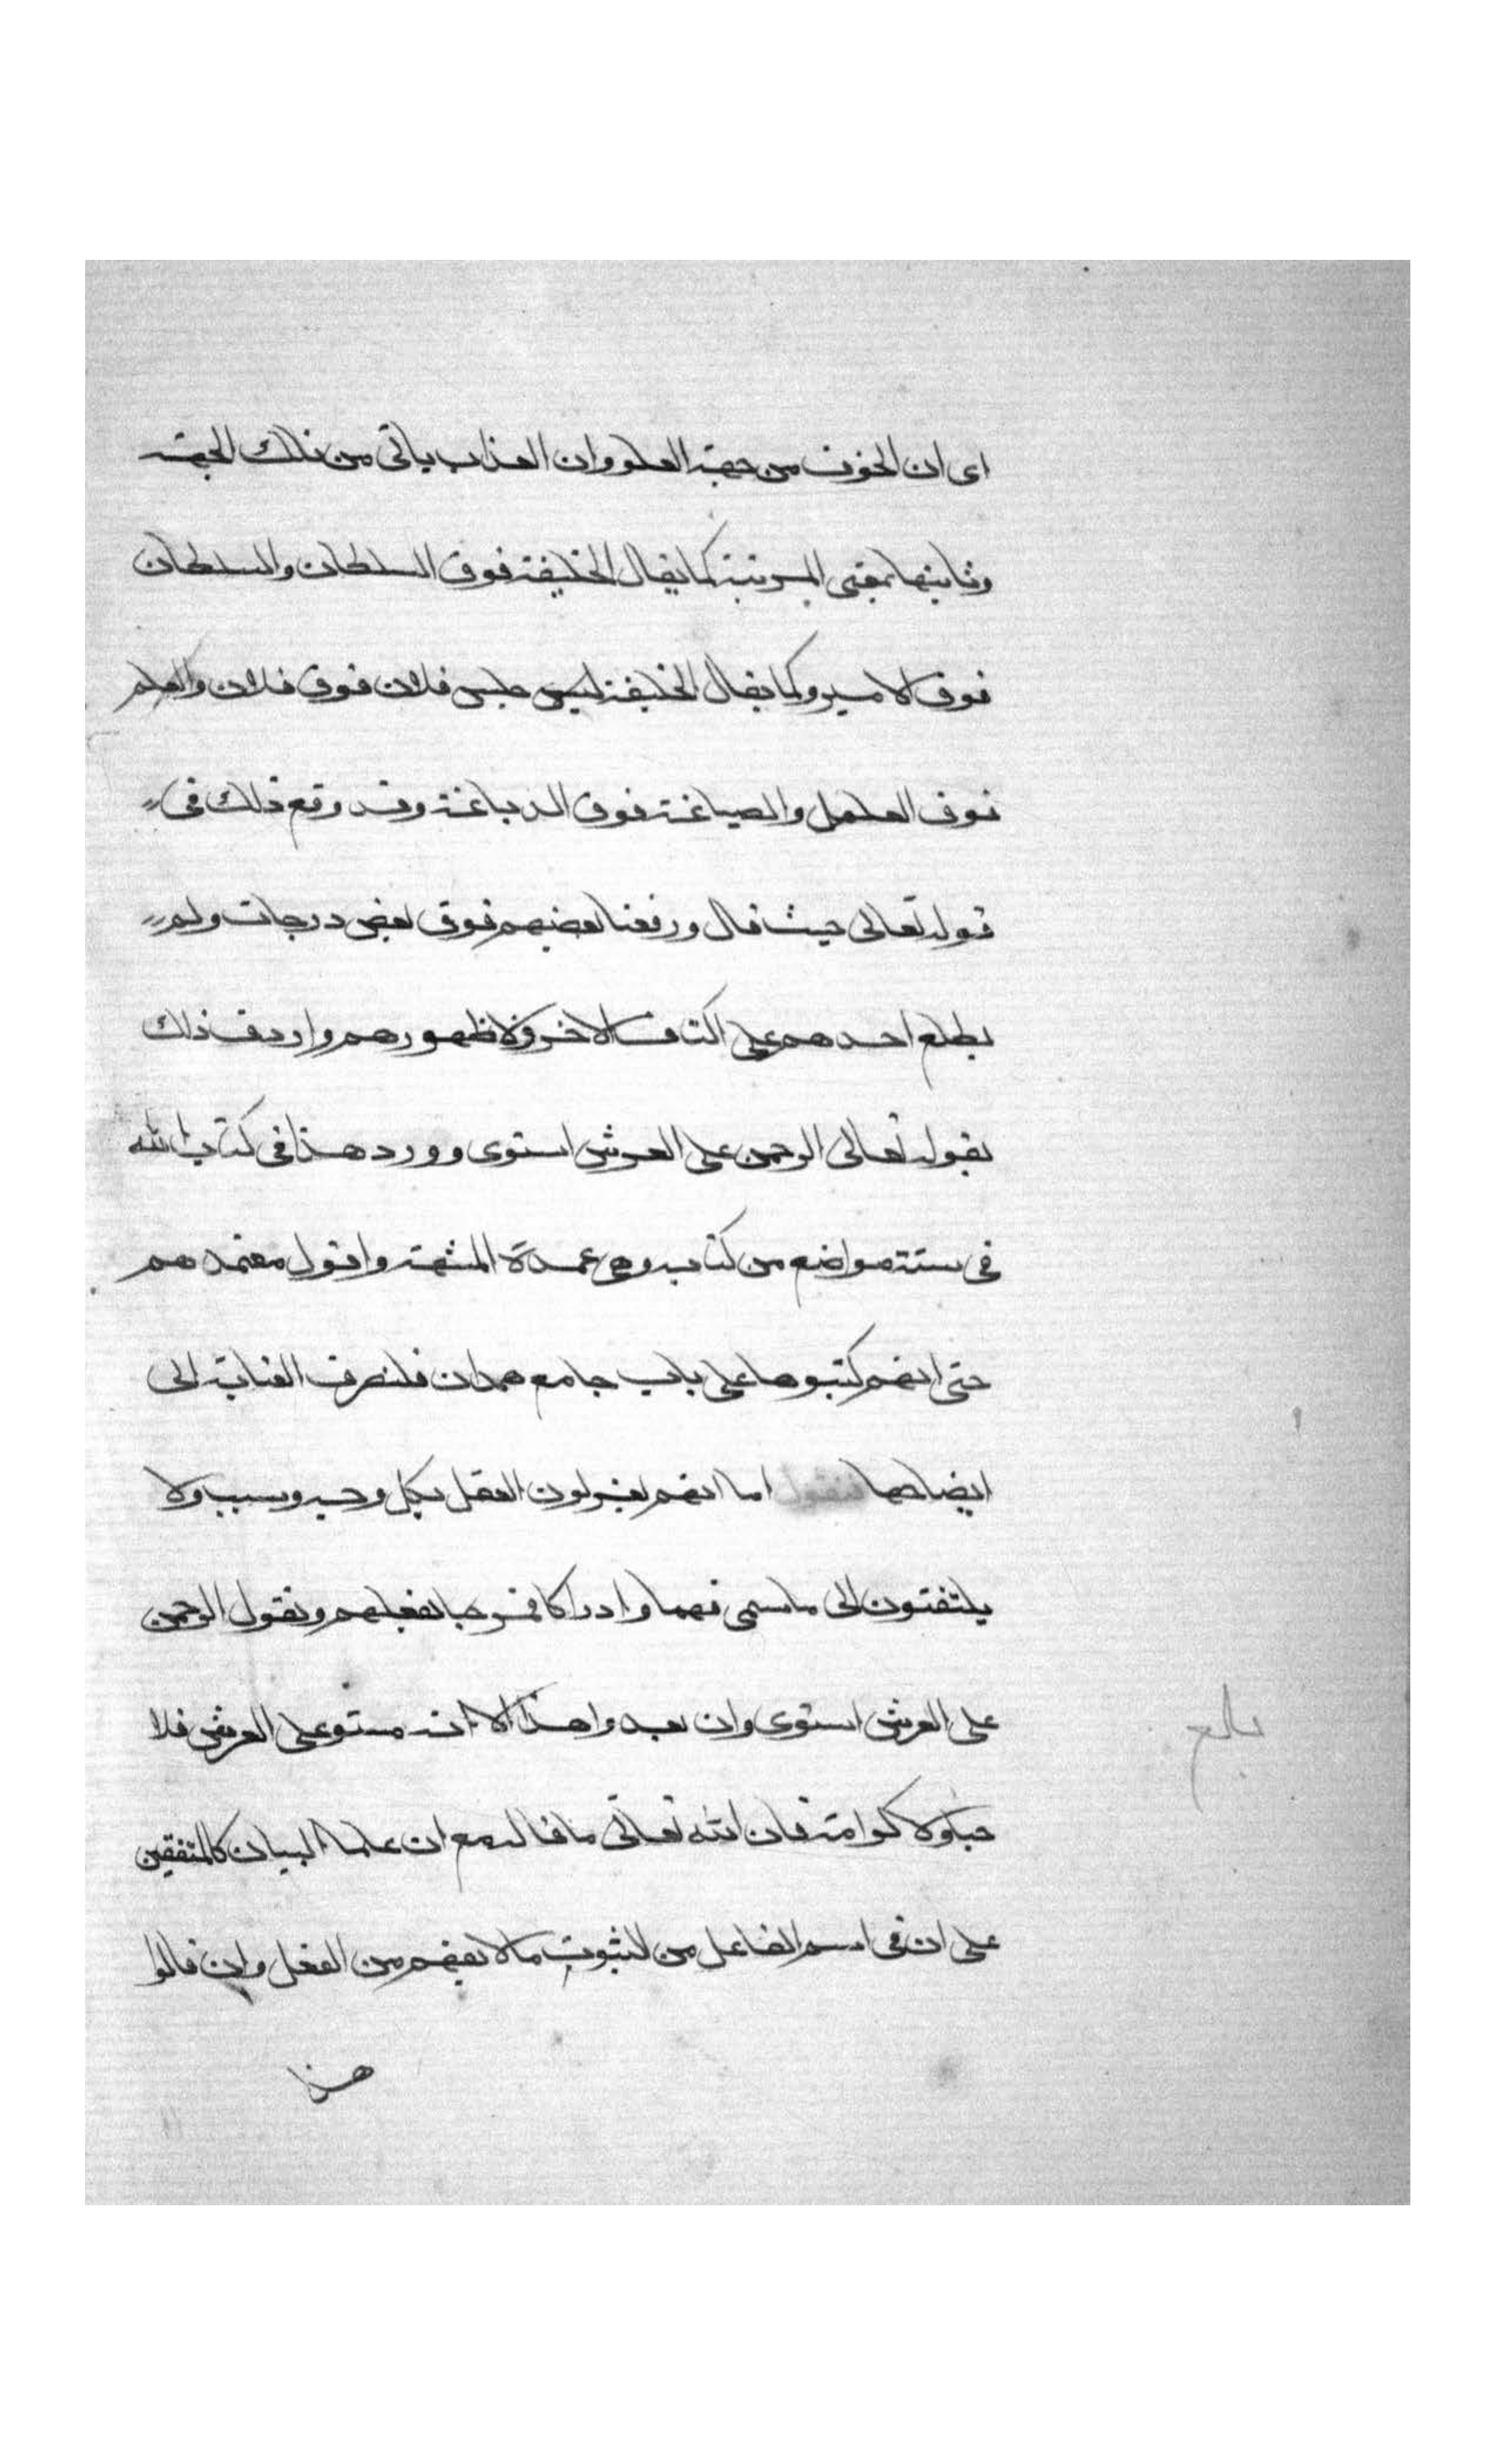 اى ان الخوف من جهة العلو وان العذاب ياتى من تلك الجهة
وثانيها بمعنى المرتبة كما يقال الخليفة فوق السلطان والسلطان
فوق الامير وكما يقال جلس فلان فوق فلان والعلم
فوق العمل والصياغة فوق الدباغة وقد وقع ذلك فى
قوله تعالى حيث قال ورفعنا بعضهم فوق بعض درجات ولم
يطلع احدهم على اكتاف الاخر ولا ظهورهم واردف ذلك
بقوله تعالى الرحمن على العرش استوى وورد هذا فى كتاب الله
فى ستة مواضع من كتابه وهى عمدة المشبهة واقول معتمدهم
حتى انهم كتبوها على باب جامع همدان فلنصرف العناية الى
ايضاحها فنقول اما انهم يعزلون العقل بكل وجه وسبب ولا
يلتفتون الى ما سمى فهما وادراكا فمرحبا بفعلهم ونقول الرحمن
على العرش استوى وان تعدوا هذا الا انه مستو على العرش فلا
حبا ولا كرامة فان الله تعالى ما قاله مع ان علما البيان كالمتفقين
على ان فى اسم الفاعل من الثبوت ما لا يفهم من الفعل وان قالوا
هذا
بلغ